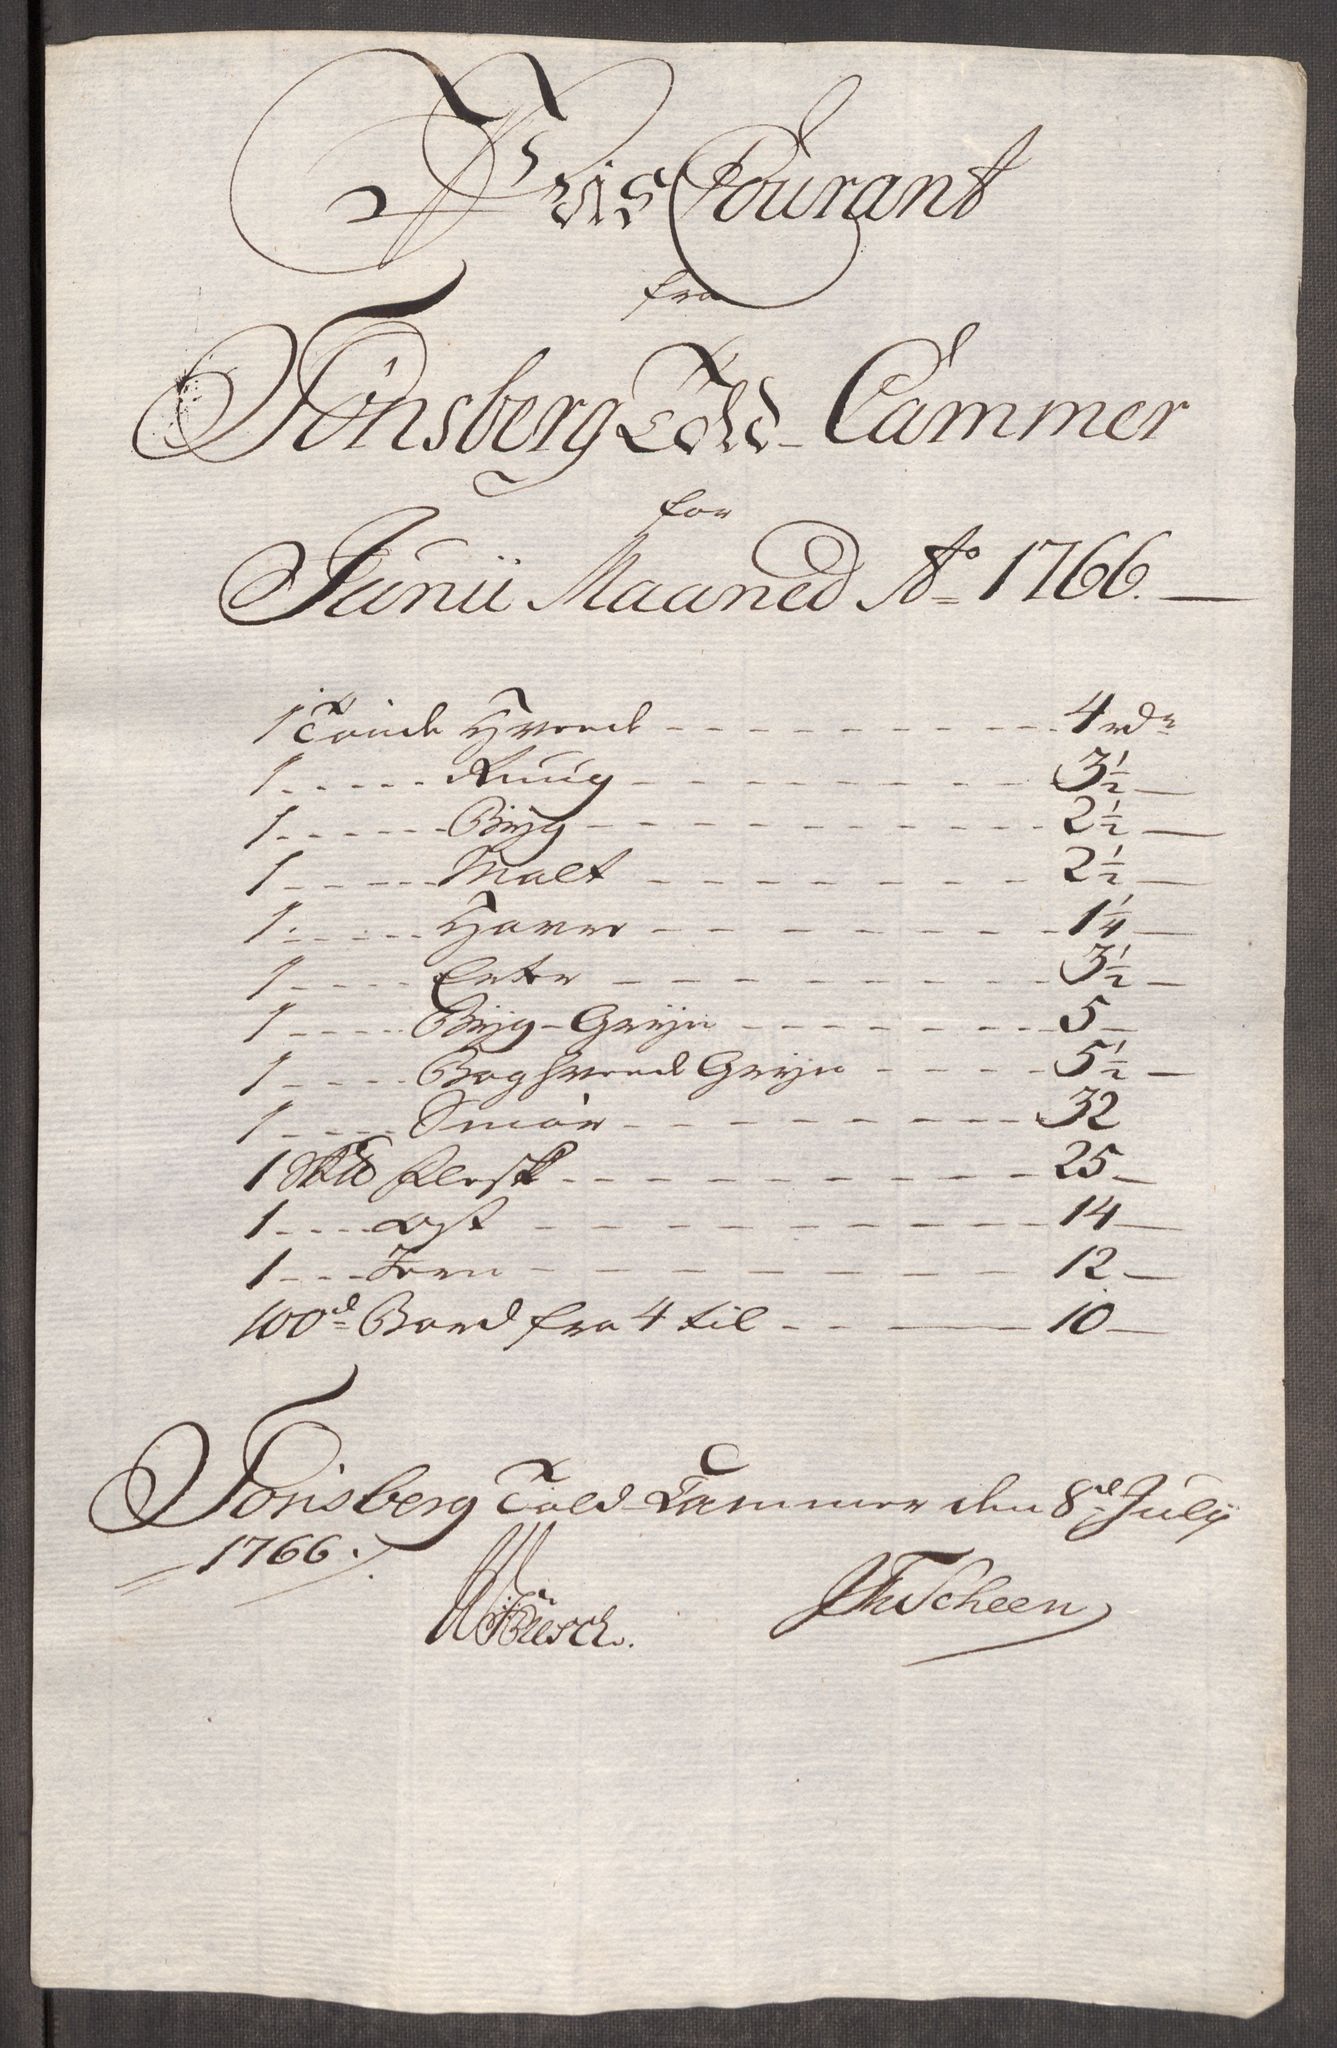 Priis Courant
fra
Tønsberg Told-Cammer
for
Junii Maaned Ao 1766.
1 Tønde Hvede - - - 4 rdr
1 - - - Rüug - - - 3 1/2
1 - - - Bÿg - - - 2 1/2
1 - - - Malt - - - 2 1/2
1 - - - Havre - - - 1 1/4
1 - - - Erter - - - 3 1/2
1 - - - Bÿg-Grÿn - - - 5
1 - - - Boghvede Grÿn - - - 5 1/2
1 - - - Smør - - - 32
1 Skd Flesk - - - 25
1 - - - Ost - - - 14
1 - - - Jern - - - 12
100d Bord fra 4 til - - - 10
Tønsberg Told-Cammer den 8d Julÿ
1766.
Büesch. Scheen